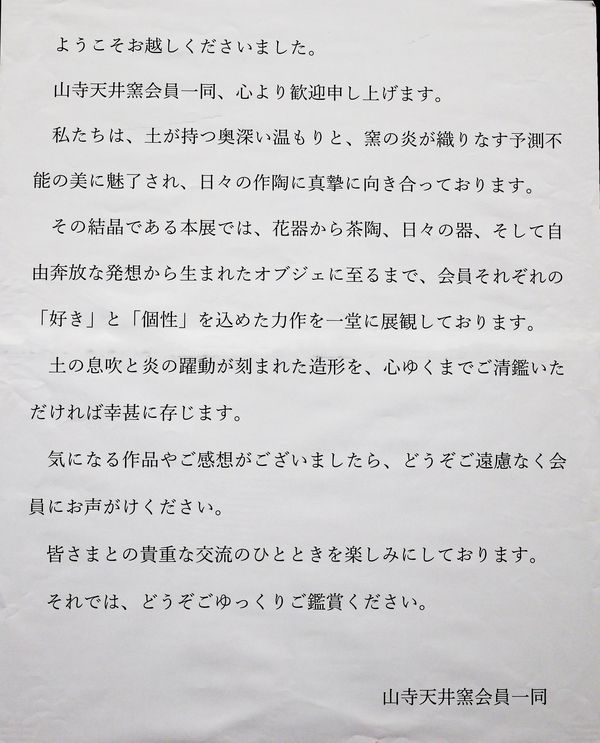 ようこそお越しくださいました。
山寺天井窯会員一同、心より歓迎申し上げます。
私たちは、土が持つ奥深い温もりと、窯の炎が織りなす予測不
能の美に魅了され、日々の作陶に真摯に向き合っております。
その結晶である本展では、花器から茶陶、日々の器、そして自
由奔放な発想から生まれたオブジェに至るまで、会員それぞれの
「好き」と「個性」を込めた力作を一堂に展観しております。
土の息吹と炎の躍動が刻まれた造形を、心ゆくまでご清鑑いた
だければ幸甚に存じます。
気になる作品やご感想がございましたら、どうぞご遠慮なく会
員にお声がけください。
皆さまとの貴重な交流のひとときを楽しみにしております。
それでは、どうぞごゆっくりご鑑賞ください。
山寺天井窯会員一同